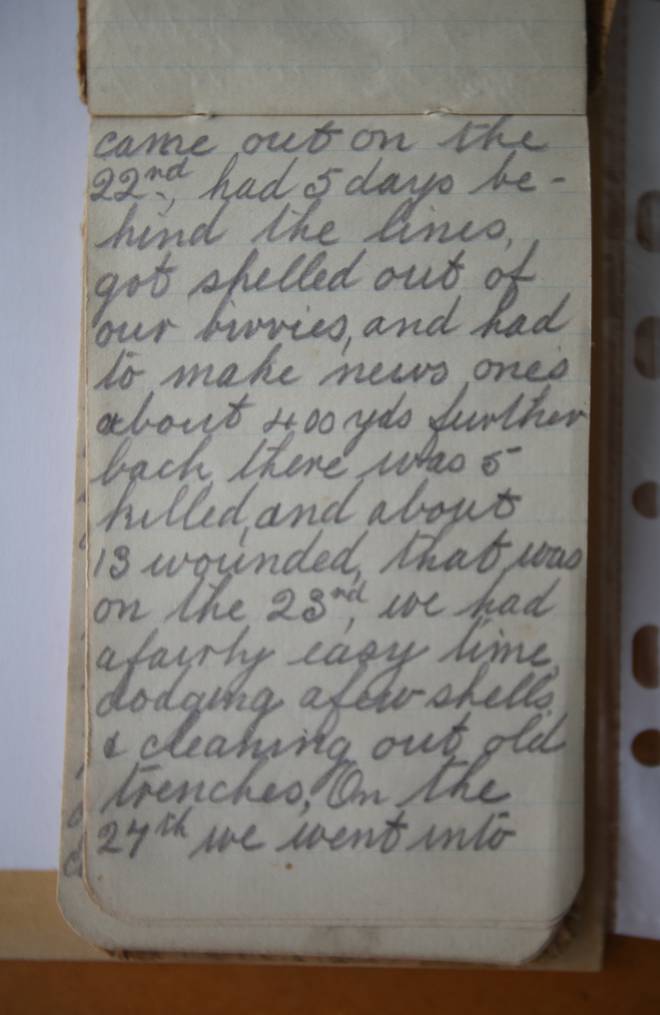 came out on the
22nd, had 5 days be-
hind the lines,
got shelled out of
our bivvies, and had
to make news ones
about 400 yds further
back, there was 5
killed, and about
13 wounded, that was
on the 23rd, we had
a fairly easy time,
dodging a few shells,
& cleaning out old
trenches, On the
27th we went into